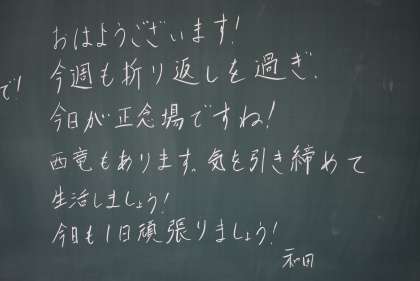 おはようございます!
今週も折り返しを過ぎ、
で!
今日が正念場ですね!
西竜もあります。気を引き締めて
生活しましょう!
今日も1日頑張りましょう!
和田